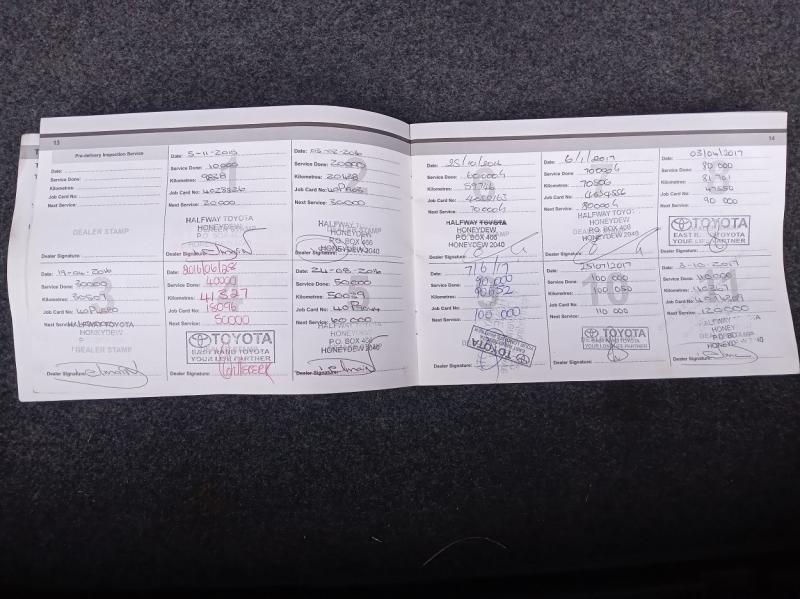 13
Pre-delivery Inspection Service
Date:
Service Done:
Kilometres:
Job Card No:
Next Service:
DEALER STAMP
Dealer Signature:
Date: 5-11-2015
Service Done: 10000
Kilometres: 9828
Job Card No: 4028826
Next Service: 20000
HALFWAY TOYOTA
HONEYDEW
P.O. BOX
HONEYDEW 2040
Dealer Signature:
Date: 03-02-2016
Service Done: 20000
Kilometres: 20128
Job Card No:
Next Service: 30000
HALFWAY
HONEYDEW
P.O. BOX 466
HONEYDEW 2040
Dealer Signature:
Date: 19-04-2016
Service Done: 30000
Kilometres: 30507
Job Card No:
Next Service:
HALFWAY TOYOTA
DEALER STAMP
Dealer Signature:
2016/06/28
Service Done: 40000
Kilometres: 41327
Job Card No: 18096
Next Service: 50000
TOYOTA
EAST RAND TOYOTA
YOUR LIFE PARTNER
Dealer Signature:
Date: 24-08-2016
Service Done: 50000
Kilometres: 50039
Job Card No:
Next Service: 60 000
HALFWAY
HONEYDEW
P.O. BOX 466
HONEYDEW 2040
Dealer Signature:
14
Date: 25/10/2016
Service Done: 60000
Kilometres: 59746
Job Card No:
Next Service: 70000
HALFWAY TOYOTA
HONEYDEW
P.O. BOX 466
HONEYDEW 2040
Date: 6/1/2017
Service Done: 70000
Kilometres: 70506
Job Card No:
Next Service: 80000
HALFWAY TOYO
HONEYDEW
P.O. BOX
HONEYDEW 2040
Date: 03/04/2017
Service Done: 80 000
Kilometres: 81 701
Job Card No: 47550
Next Service: 90 000
TOYOTA
EAST R TOYOTA
YOUR LIFE PARTNER
Dealer Signature:
Date: 7/6/17
Service Done: 90 000
Kilometres:
Job Card No:
Next Service: 100 000
TOYOTA
Dealer Signature:
Date:
Service Done: 100 000
Kilometres: 100 050
Job Card No:
Next Service: 110 000
TOYOTA
Dealer Signature:
Date: 3-10-2017
Service Done: 110000
Kilometres: 110367
Job Card No:
Next Service: 120000
HALFWAY
HONEY
P.O. BOX
HONEYDEW
Dealer Signature: